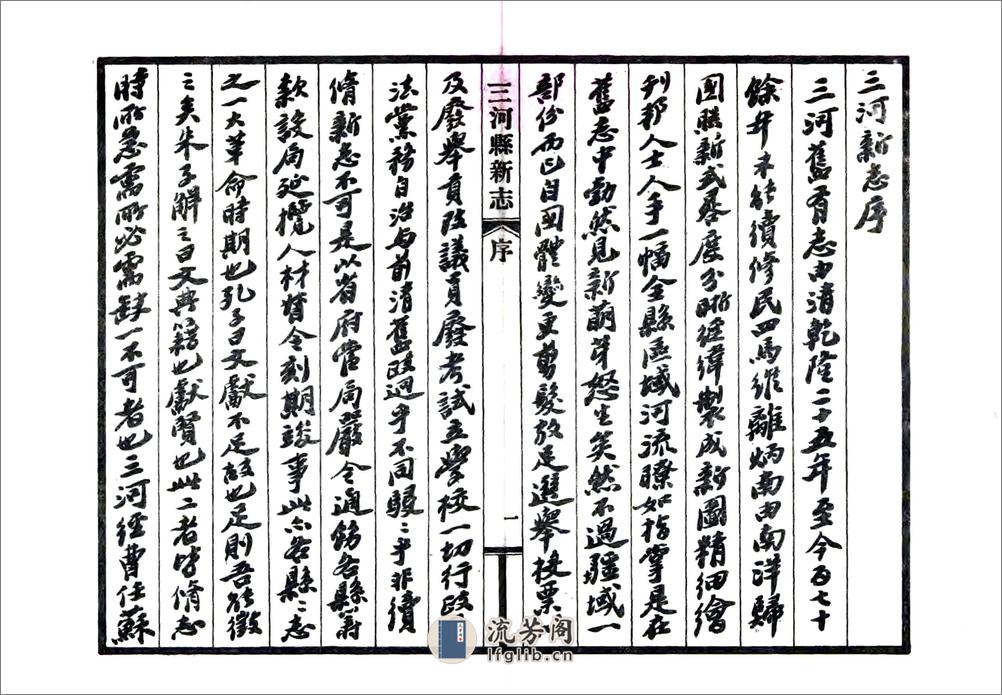 三河新志序
三河舊有志由清乾隆二十五年至今百七十
餘年未能續修民四馬維離炳南由南洋歸
國照新式琴度分晰經緯製成新圖精細繪
刊邦人士人手一幅全縣區域河流瞭如指掌是在
舊志中勃然見新萌芽怒生矣然不過疆域一
部份而已自國體變更剪髮放足選舉投票以
三河縣新志
序
一
及廢舉貢改議員廢考試立學校一切行政司
法黨務自治與前清舊政迥乎不同駸三乎非續
脩新志不可是以省府當局嚴令通飭各縣籌
款設局延攬人材督令刻期竣事此亦各縣三志
之一大革命時期也孔子曰文獻不足故也足則吾能徵
之矣朱子解之曰文典籍也獻賢也此二者皆脩志
時所急需所必需缺一不可者也三河經曹任蘇
流芳閣
lfglib.cn